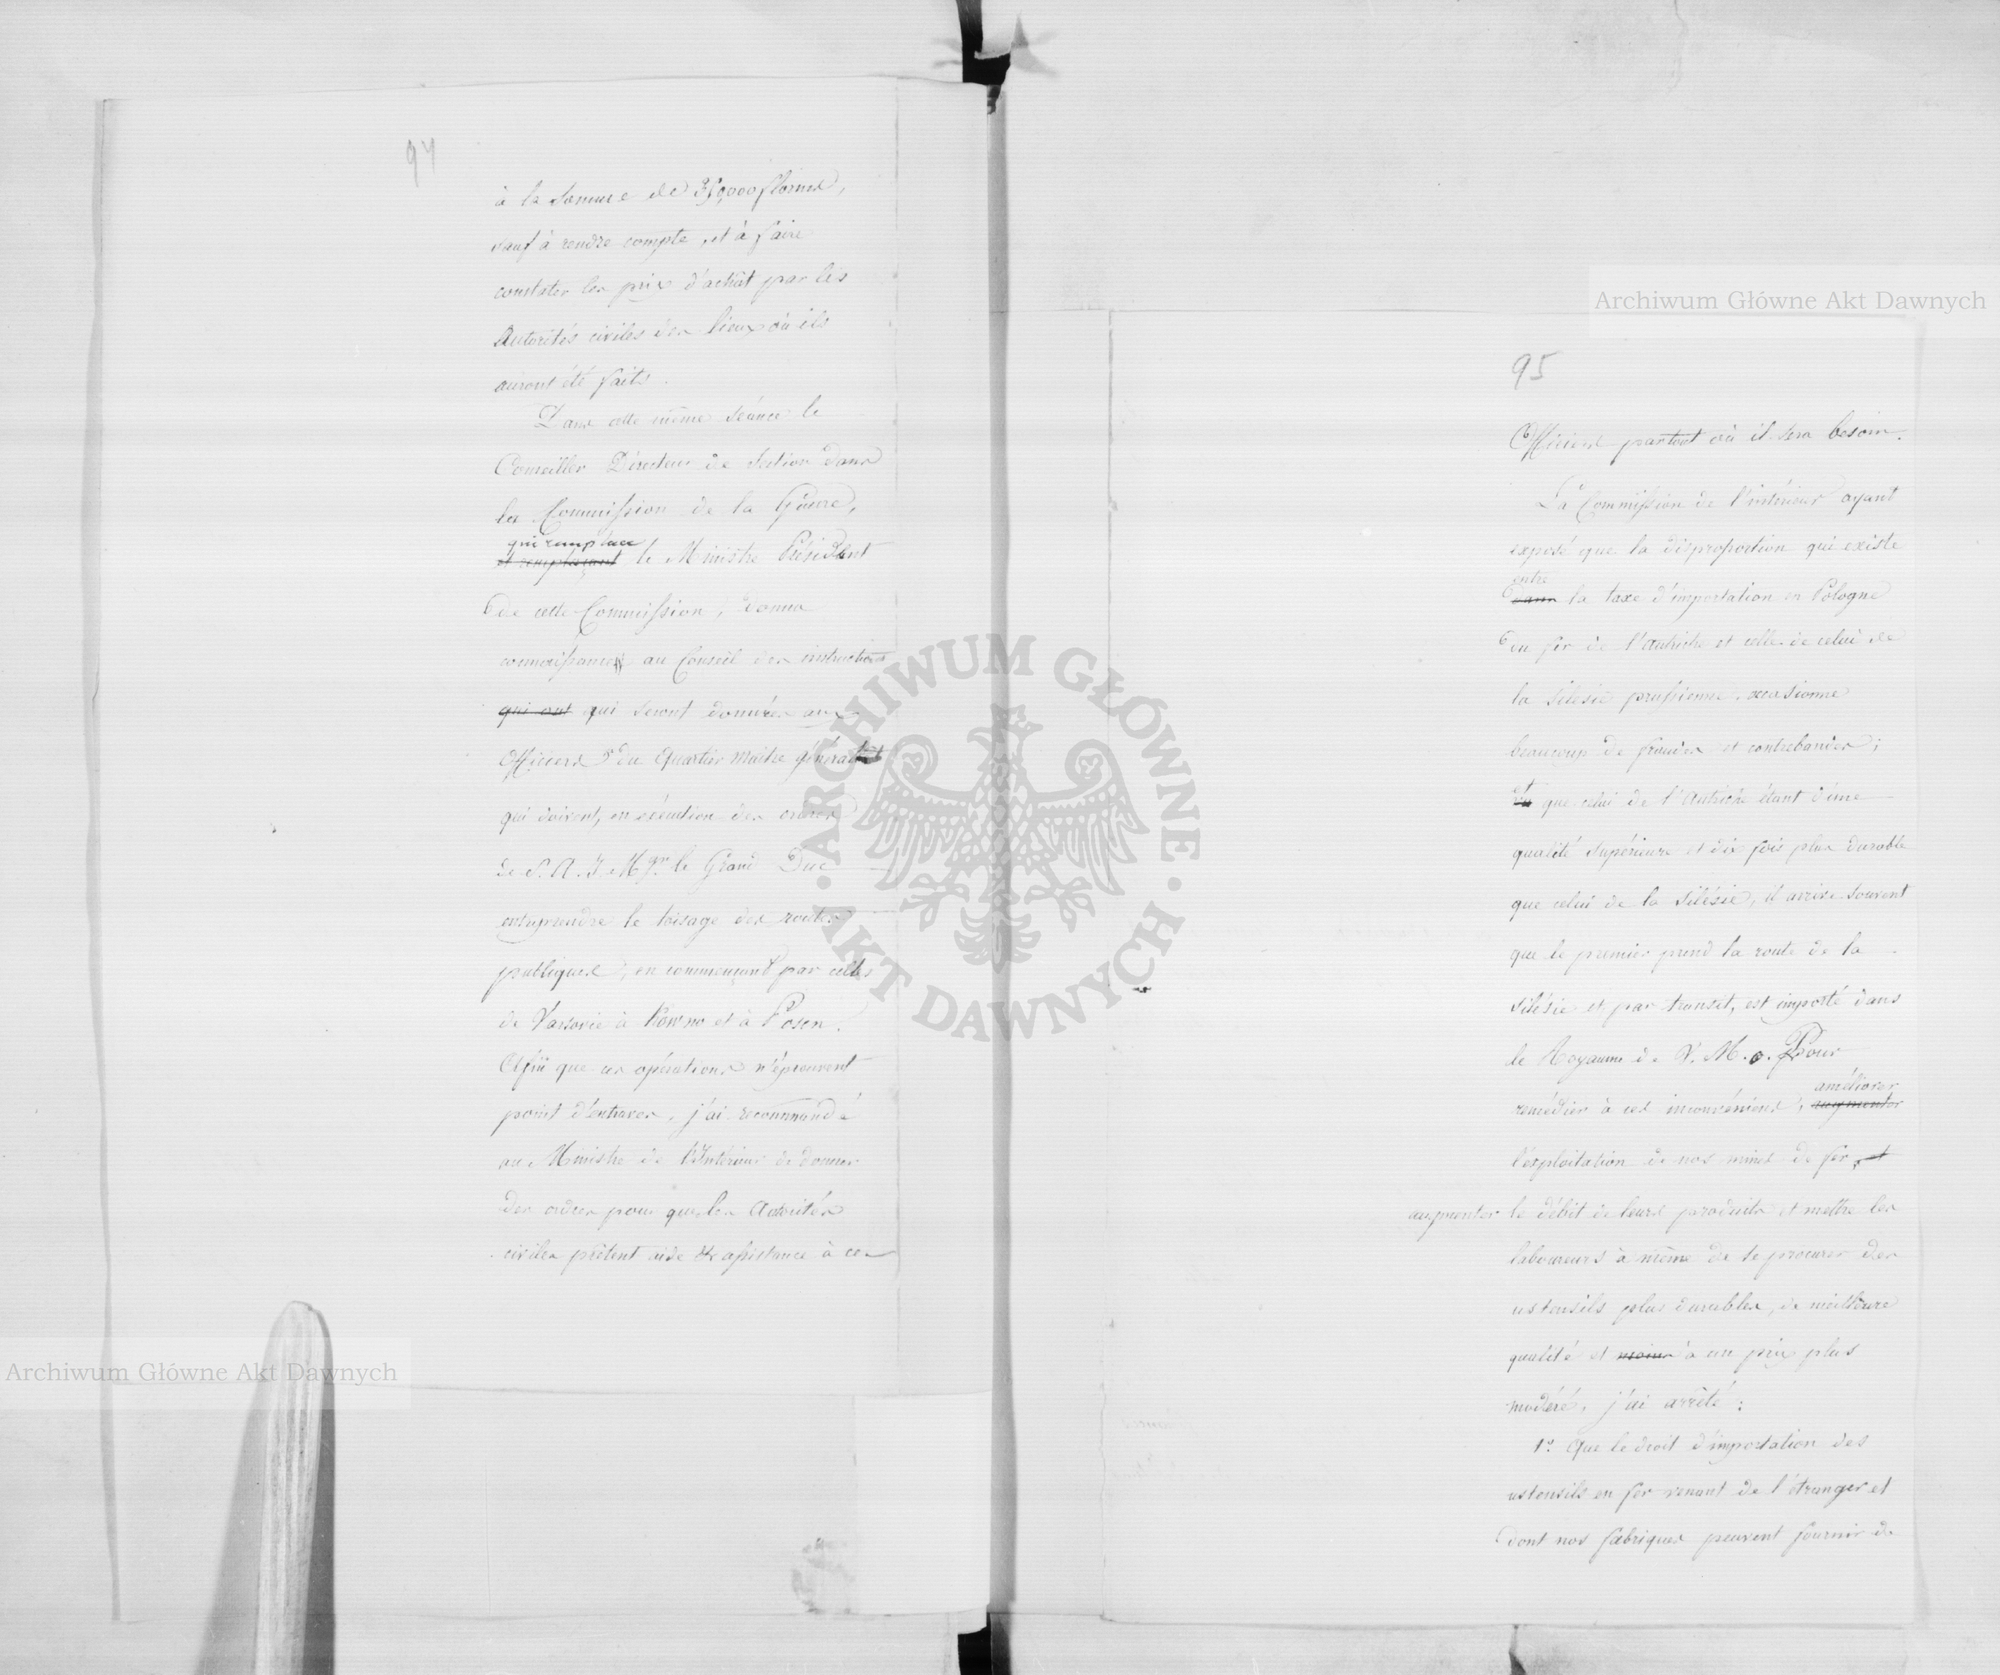 94
à la Somme de 350,000 florins,
sauf à rendre compte, et à faire
constater les prix d'achât par les
Autorités civiles des lieux où ils
auront été faits.
Dans cette même séance le
Conseiller Directeur de Section dans
la Commission de la Guerre,
qui remplace
et remplaçant le Ministre Président
de cette Commission, donna
connaissance au Conseil des instructions
qui ont qui seront données aux
Officiers du Quartier Maitre général
qui doivent, en exécution des ordres
de S. A. I. Mgr. le Grand Duc
entreprendre le toisage des routes
publiques, en commençant par celles
de Varsovie à Kowno et à Posen.
Afin que ces opérations n'éprouvent
point d'entraves, j'ai recommandé
au Ministre de l'Intérieur de donner
des ordres pour que les Autorités
civiles prêtent aide et assistance à ces
95
Officiers partout où il sera besoin.
La Commission de l'intérieur ayant
exposé que la disproportion qui existe
entre
dans la taxe d'importation en Pologne
du fer de l'Autriche et celle de celui de
la Silésie prussienne, occasionne
beaucoup de fraudes et contrebandes;
que celui de l'Autriche étant d'une
qualité supérieure et dix fois plus durable
que celui de la Silésie, il arrive souvent
que le premier prend la route de la
Silésie et par transit, est importé dans
le Royaume de V. M. Pour
améliorer
remédier à ces inconvéniens, augmenter
l'exploitation de nos mines de fer, et
augmenter le débit de leurs produits et mettre les
laboureurs à même de se procurer des
ustensils plus durables, de meilleure
qualité et moins à un prix plus
modéré, j'ai arrêté:
1º. Que le droit d'importation des
ustensils en fer venant de l'étranger et
dont nos fabriques peuvent fournir de
Archiwum Główne Akt Dawnych
Archiwum Główne Akt Dawnych
ARCHIWUM GŁÓWNE
AKT DAWNYCH